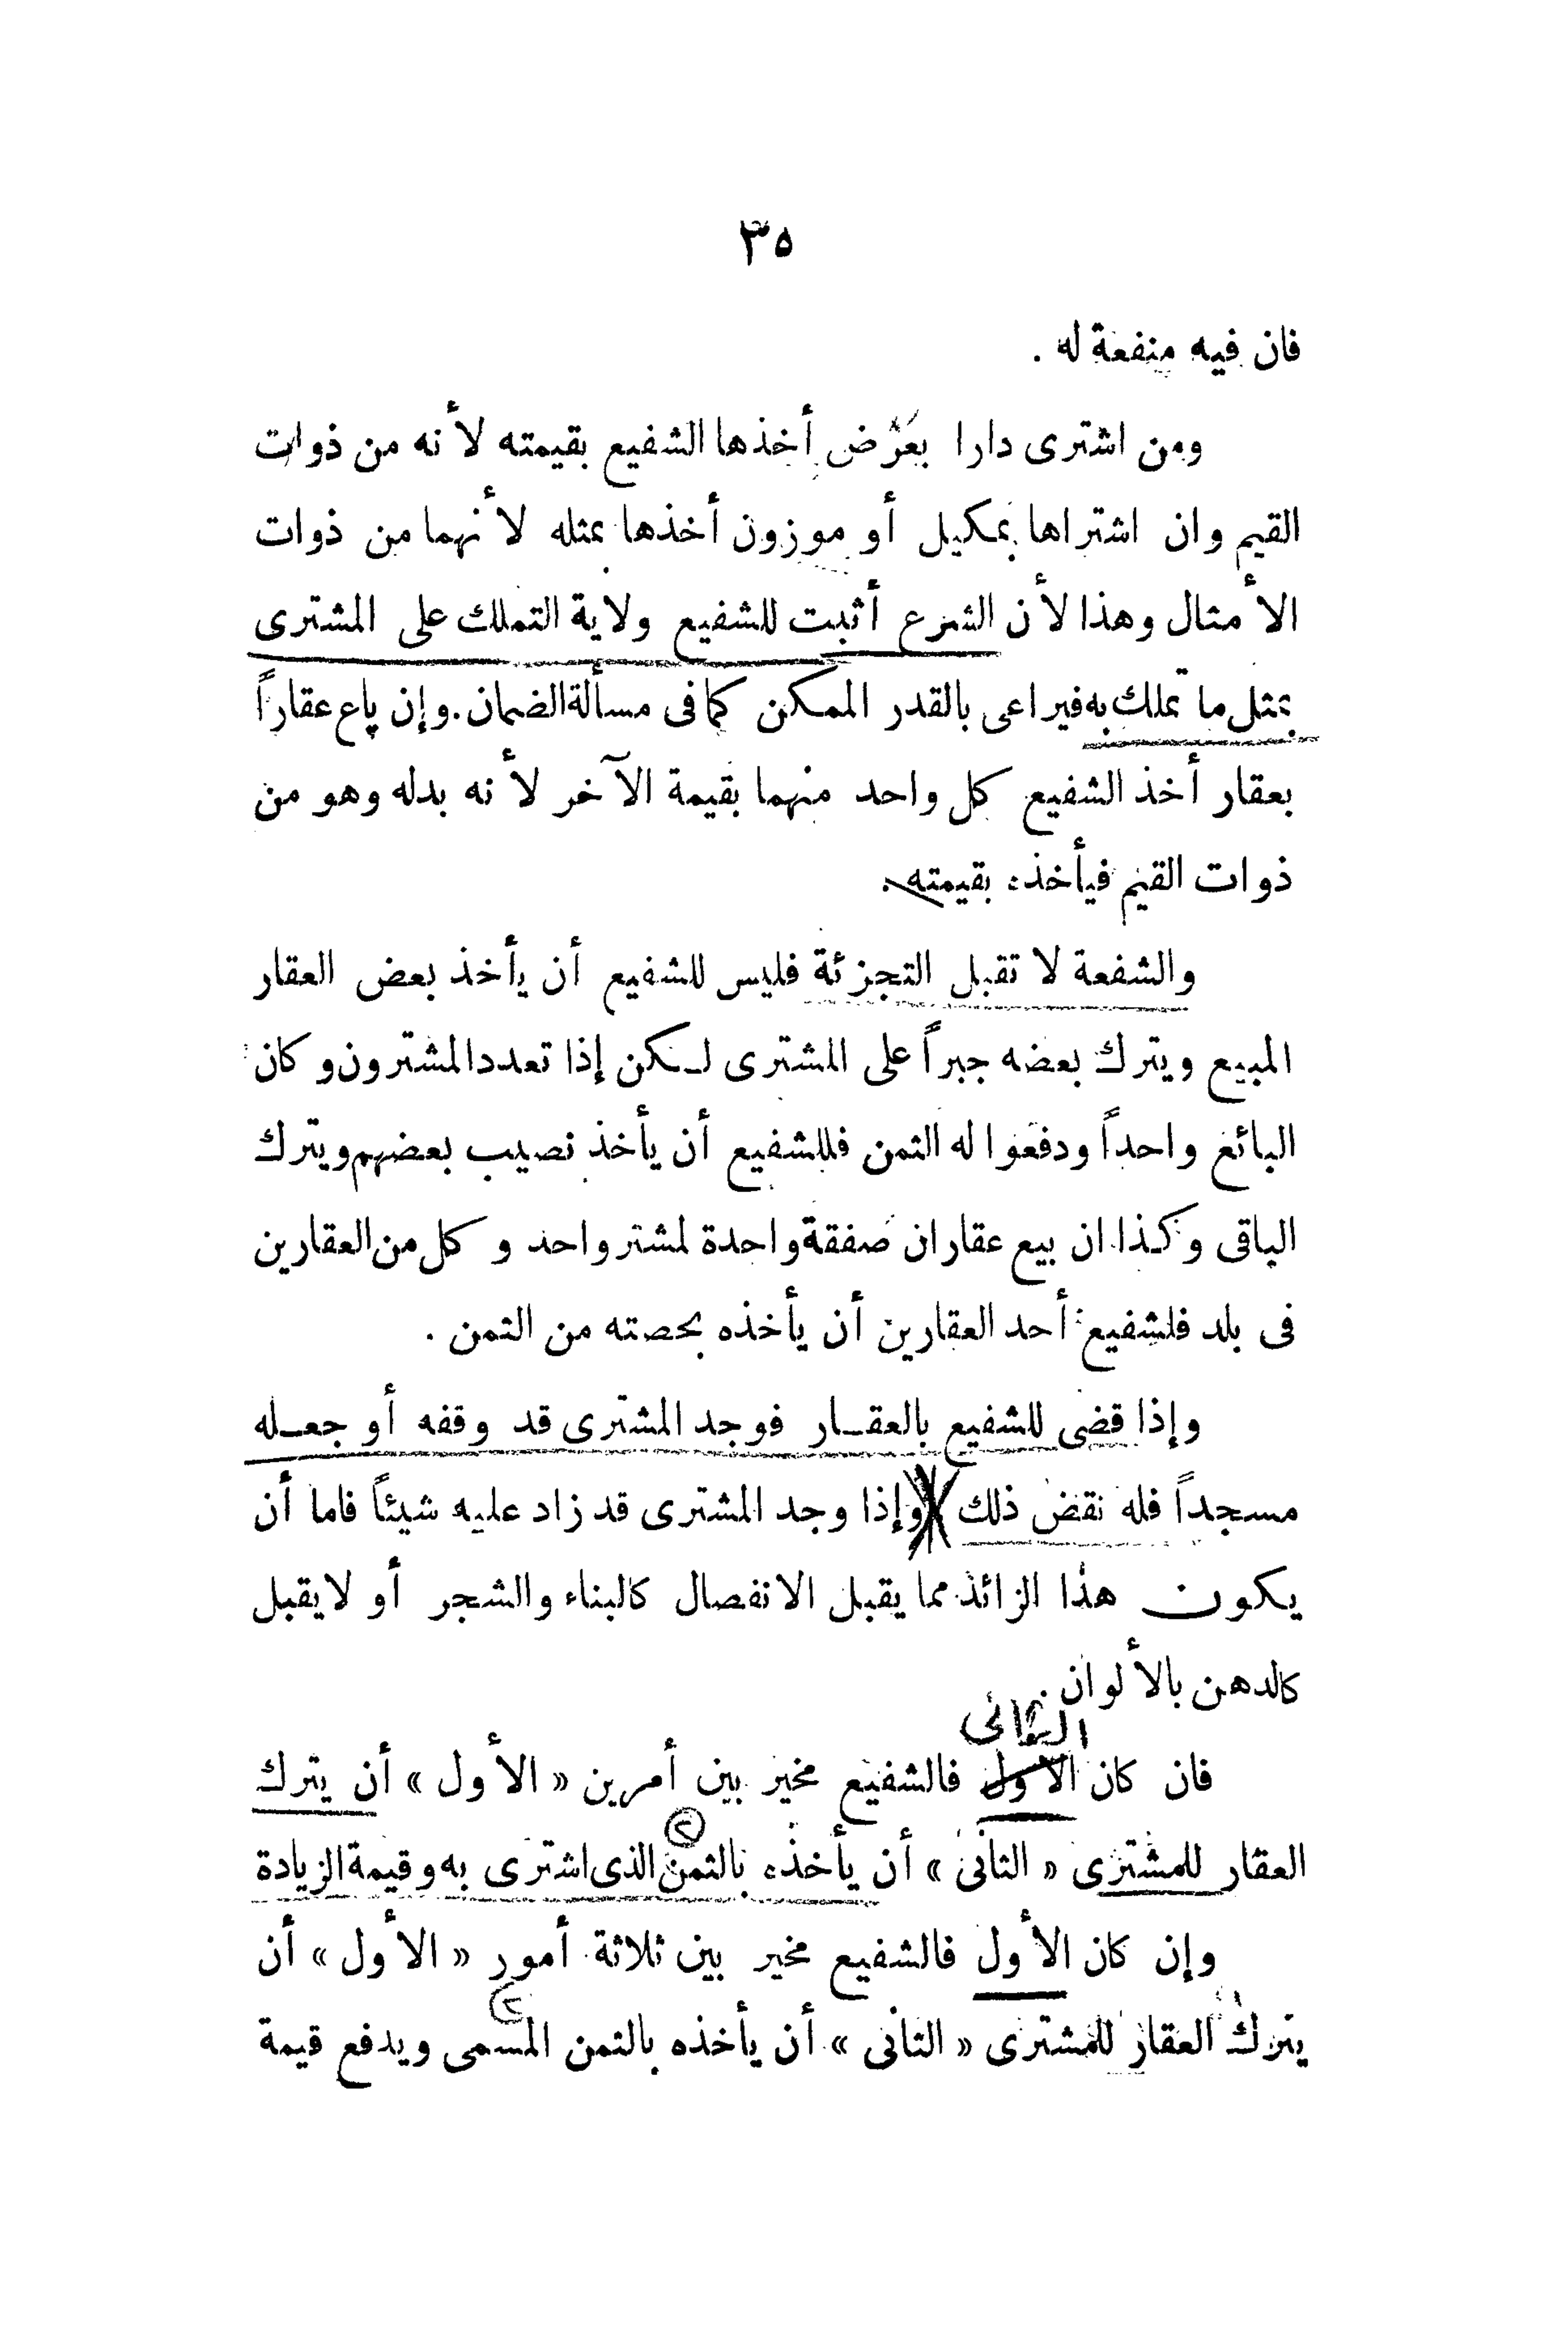 ٣٥
فان فيه منفعة له .
ومن اشترى دارا بعَرْض أخذها الشفيع بقيمته لأنه من ذوات
القيم وان اشتراها بمكيل أو موزون أخذها بمثله لأنهما من ذوات
الأمثال وهذا لأن الشرع أثبت للشفيع ولاية التملك على المشترى
بمثل ما تملك به فيراعى بالقدر الممكن كما فى مسألة الضمان . وإن باع عقاراً
بعقار أخذ الشفيع كل واحد منهما بقيمة الآخر لأنه بدله وهو من
ذوات القيم فيأخذه بقيمته .
والشفعة لا تقبل التجزئة فليس للشفيع أن يأخذ بعض العقار
المبيع ويترك بعضه جبراً على المشترى لـكن إذا تعدد المشترون وكان
البائع واحداً ودفعوا له الثمن فللشفيع أن يأخذ نصيب بعضهم ويترك
الباقى وكذا ان بيع عقاران صفقة واحدة لمشتر واحد وكل من العقارين
فى بلد فلشفيع أحد العقارين أن يأخذه بحصته من الثمن .
وإذا قضى للشفيع بالعقـار فوجد المشترى قد وقفه أو جعـله
مسجداً فله نقض ذلك وإذا وجد المشترى قد زاد عليه شيئاً فاما أن
يكون هذا الزائد مما يقبل الانفصال كالبناء والشجر أو لا يقبل
كالدهن بالألوان .
الثانى
فان كان الأول فالشفيع مخير بين أمرين « الأول » أن يترك
العقار للمشترى « الثانى » أن يأخذه بالثمن الذى اشترى به وقيمة الزيادة
وإن كان الأول فالشفيع مخير بين ثلاثة أمور « الأول » أن
يترك العقار للمشترى « الثانى » أن يأخذه بالثمن المسمى ويدفع قيمة